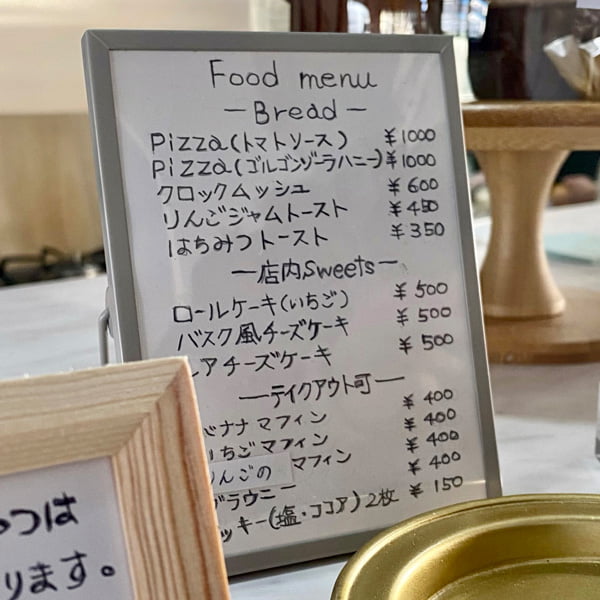 Food menu
—Bread—
Pizza(トマトソース) ¥1000
Pizza(ゴルゴンゾーラハニー) ¥1000
クロックムッシュ ¥600
りんごジャムトースト ¥450
はちみつトースト ¥350
—店内Sweets—
ロールケーキ(いちご) ¥500
バスク風チーズケーキ ¥500
アチーズケーキ ¥500
—テイクアウト可—
バナナマフィン ¥400
いちごマフィン ¥400
りんごのマフィン ¥400
ブラウニー ¥400
ッキー(塩・ココア)2枚 ¥150
つは
ります。